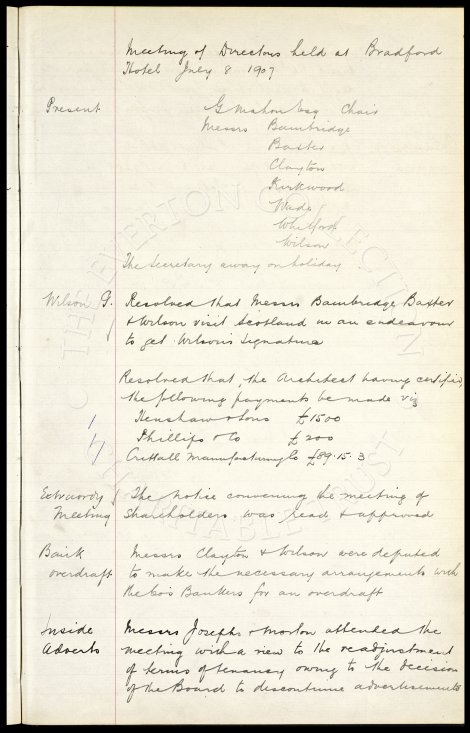 Meeting of Directors held at Bradford
Hotel July 8 1907
Present G Mahon Esq Chair
Messrs Bainbridge
Baxter
Clayton
Kirkwood
Wade
Whitford
Wilson
The Secretary away on holiday
Wilson G. Resolved that Messrs Bainbridge Baxter
& Wilson visit Scotland in an endeavour
to get Wilson's signature
Resolved that, the Architect having certified,
the following payments be made viz
Henshaw & Sons £1500
Phillips & Co £200
Crittall Manufacturing Co £89.15.3
Extraordy The notice convening the meeting of
Meeting Shareholders was read & approved
Bank Messrs Clayton & Wilson were deputed
overdraft to make the necessary arrangements with
the Co's Bankers for an overdraft
Inside Messrs Josephs & Morton attended the
Adverts meeting with a view to the readjustment
of terms of tenancy owing to the decision
of the Board to discontinue advertisements
THE EVERTON COLLECTION
CHARITABLE TRUST